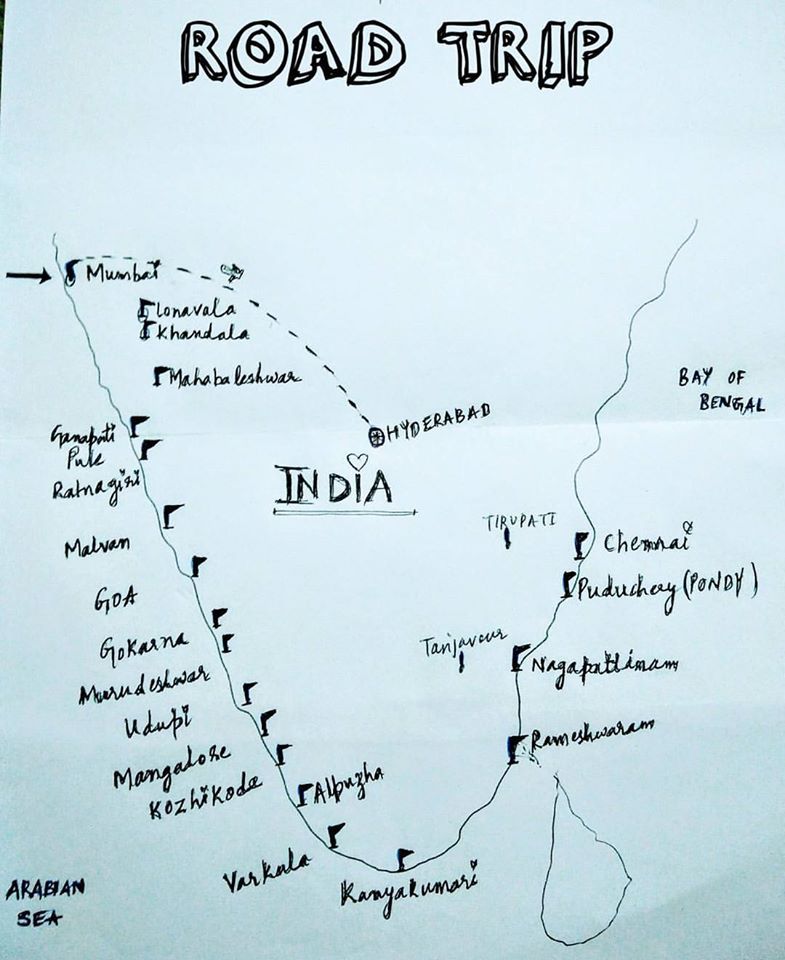 ROAD TRIP
Mumbai
Lonavala
Khandala
Mahabaleshwar
HYDERABAD
BAY OF
BENGAL
Ganapati
Pule
Ratnagiri
INDIA
Malvan
TIRUPATI
Chennai
GOA
Puduchery (PONDY)
Gokarna
Tanjavour
Nagapattinam
Murudeshwar
Udupi
Rameshwaram
Mangalore
Kozhikode
Alpuzha
Varkala
Kanyakumari
ARABIAN
SEA